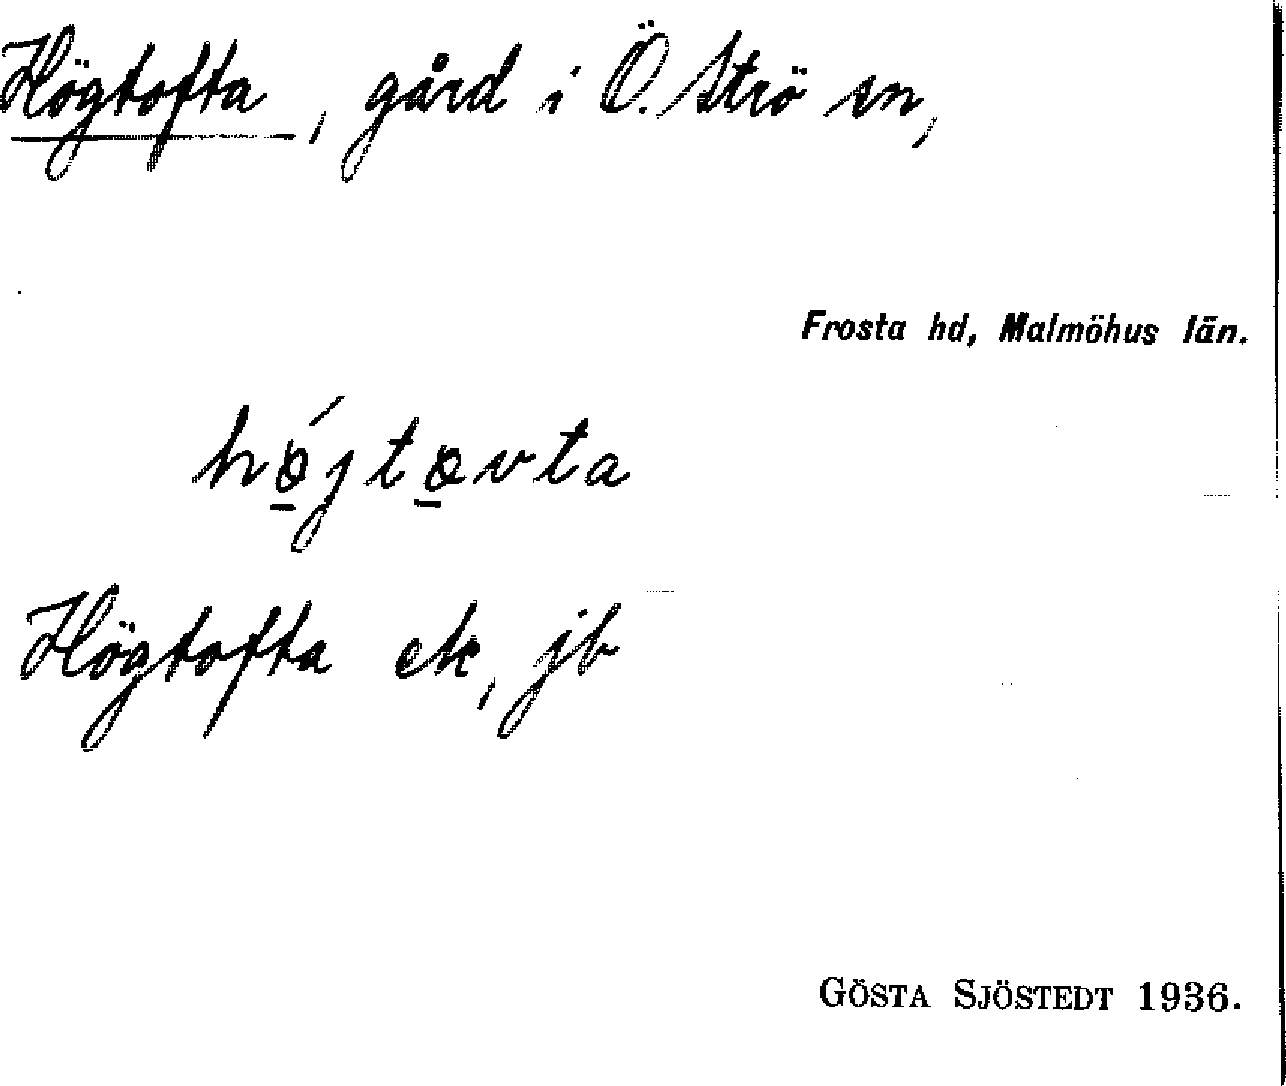 Högtofta, gård i Ö. Strö sn,
Frosta hd, Malmöhus län.
hǿ̱jtø̱vta
Högtofta ek, jb
GÖSTA SJÖSTEDT 1936.